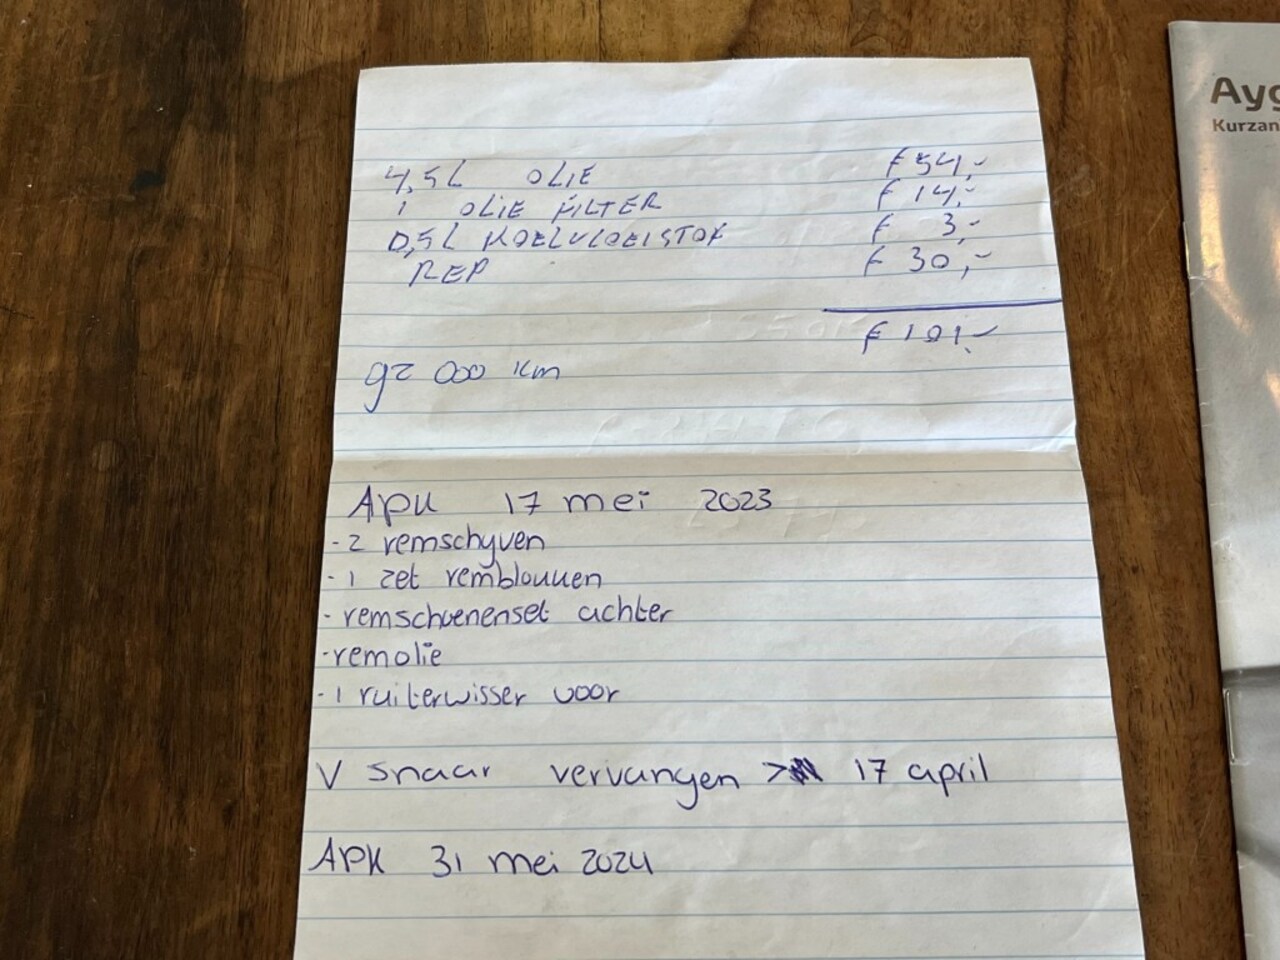 4,5L OLIE f 54,-
1 OLIE FILTER f 14,-
0,5L KOELVLOEISTOF f 3,-
REP f 30,-
f 101,-
92 000 km
APK 17 mei 2023
- 2 remschyven
- 1 zet remblokken
- remschoenenset achter
- remolie
- 1 ruiterwisser voor
V snaar vervangen > 17 april
APK 31 mei 2024
Ayg
Kurzan